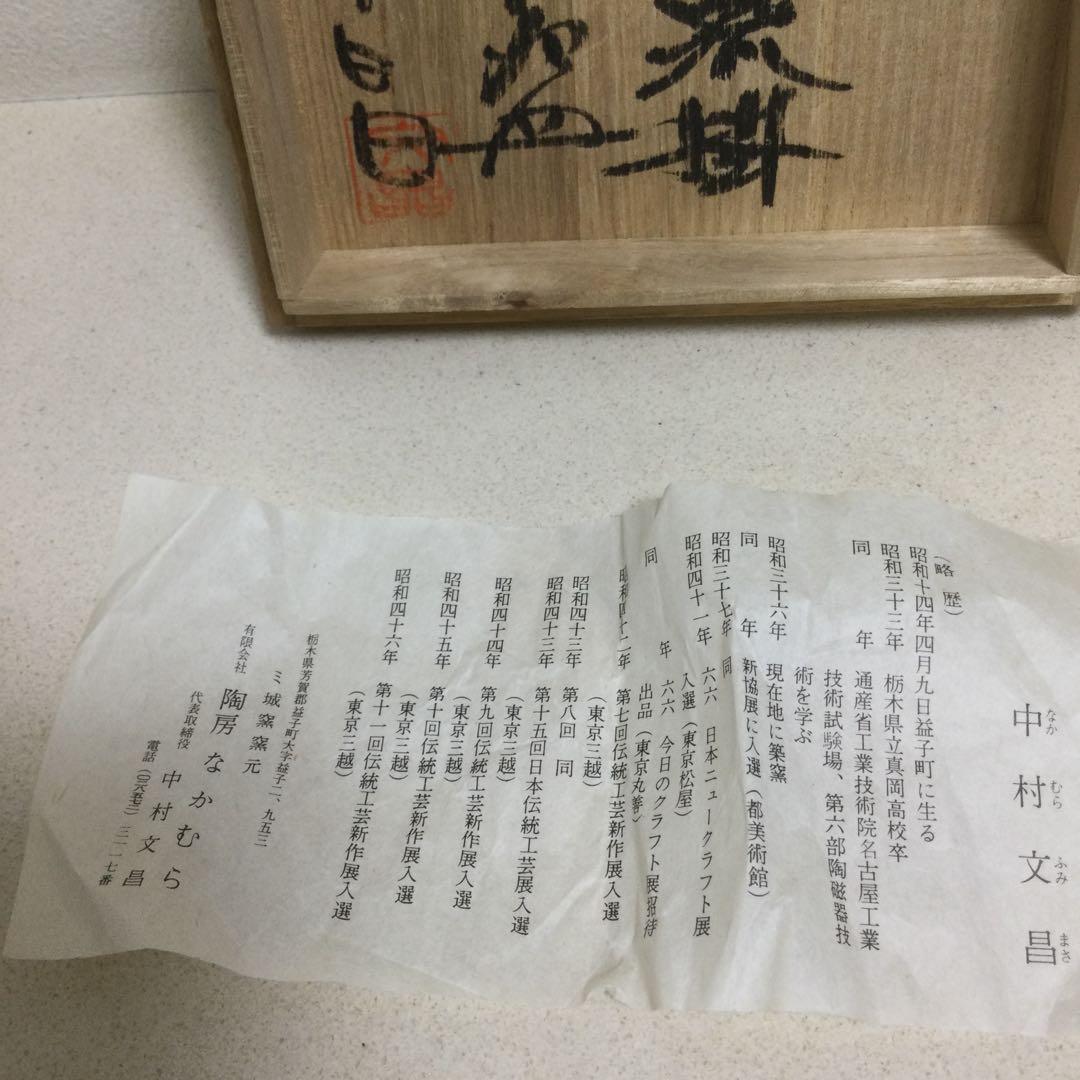 中村文昌
なか むら ふみ まさ
(略歴)
昭和十四年四月九日益子町に生る
昭和三十三年 栃木県立真岡高校卒
同 年 通産省工業技術院名古屋工業
技術試験場、第六部陶磁器技
術を学ぶ
昭和三十六年 現在地に築窯
同 年 新協展に入選(都美術館)
昭和三十七年 同
昭和四十一年 六六 日本ニュークラフト展
入選(東京松屋)
同 年 六六 今日のクラフト展招待
出品(東京丸善)
昭和四十二年 第七回伝統工芸新作展入選
(東京三越)
昭和四十三年 第八回 同
昭和四十三年 第十五回日本伝統工芸展入選
(東京三越)
昭和四十四年 第九回伝統工芸新作展入選
(東京三越)
昭和四十五年 第十回伝統工芸新作展入選
(東京三越)
昭和四十六年 第十一回伝統工芸新作展入選
(東京三越)
栃木県芳賀郡益子町大字益子二、九五三
ミ城窯窯元
有限会社 陶房なかむら
代表取締役 中村文昌
電話(〇二八五七二)三一一七番